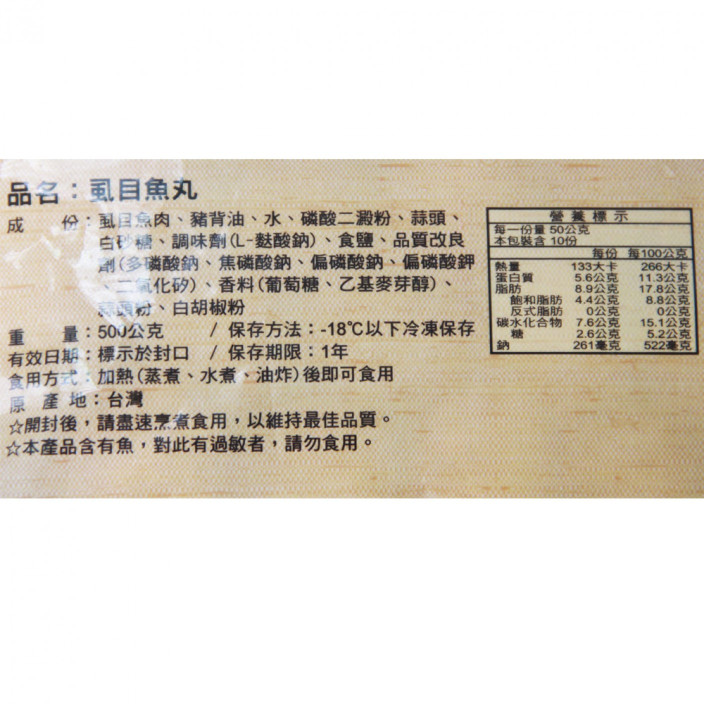 品名：虱目魚丸
成　份：虱目魚肉、豬背油、水、磷酸二澱粉、蒜頭、
白砂糖、調味劑(L-麩酸鈉)、食鹽、品質改良
劑(多磷酸鈉、焦磷酸鈉、偏磷酸鈉、偏磷酸鉀
、二氧化矽)、香料(葡萄糖、乙基麥芽醇)、
蒜頭粉、白胡椒粉
重　量：500公克　/ 保存方法：-18℃以下冷凍保存
有效日期：標示於封口　/ 保存期限：1年
食用方式：加熱(蒸煮、水煮、油炸)後即可食用
原 產 地：台灣
☆開封後，請盡速烹煮食用，以維持最佳品質。
☆本產品含有魚，對此有過敏者，請勿食用。
營養標示
每一份量 50公克
本包裝含 10份
每份 每100公克
熱量 133大卡 266大卡
蛋白質 5.6公克 11.3公克
脂肪 8.9公克 17.8公克
飽和脂肪 4.4公克 8.8公克
反式脂肪 0公克 0公克
碳水化合物 7.6公克 15.1公克
糖 2.6公克 5.2公克
鈉 261毫克 522毫克